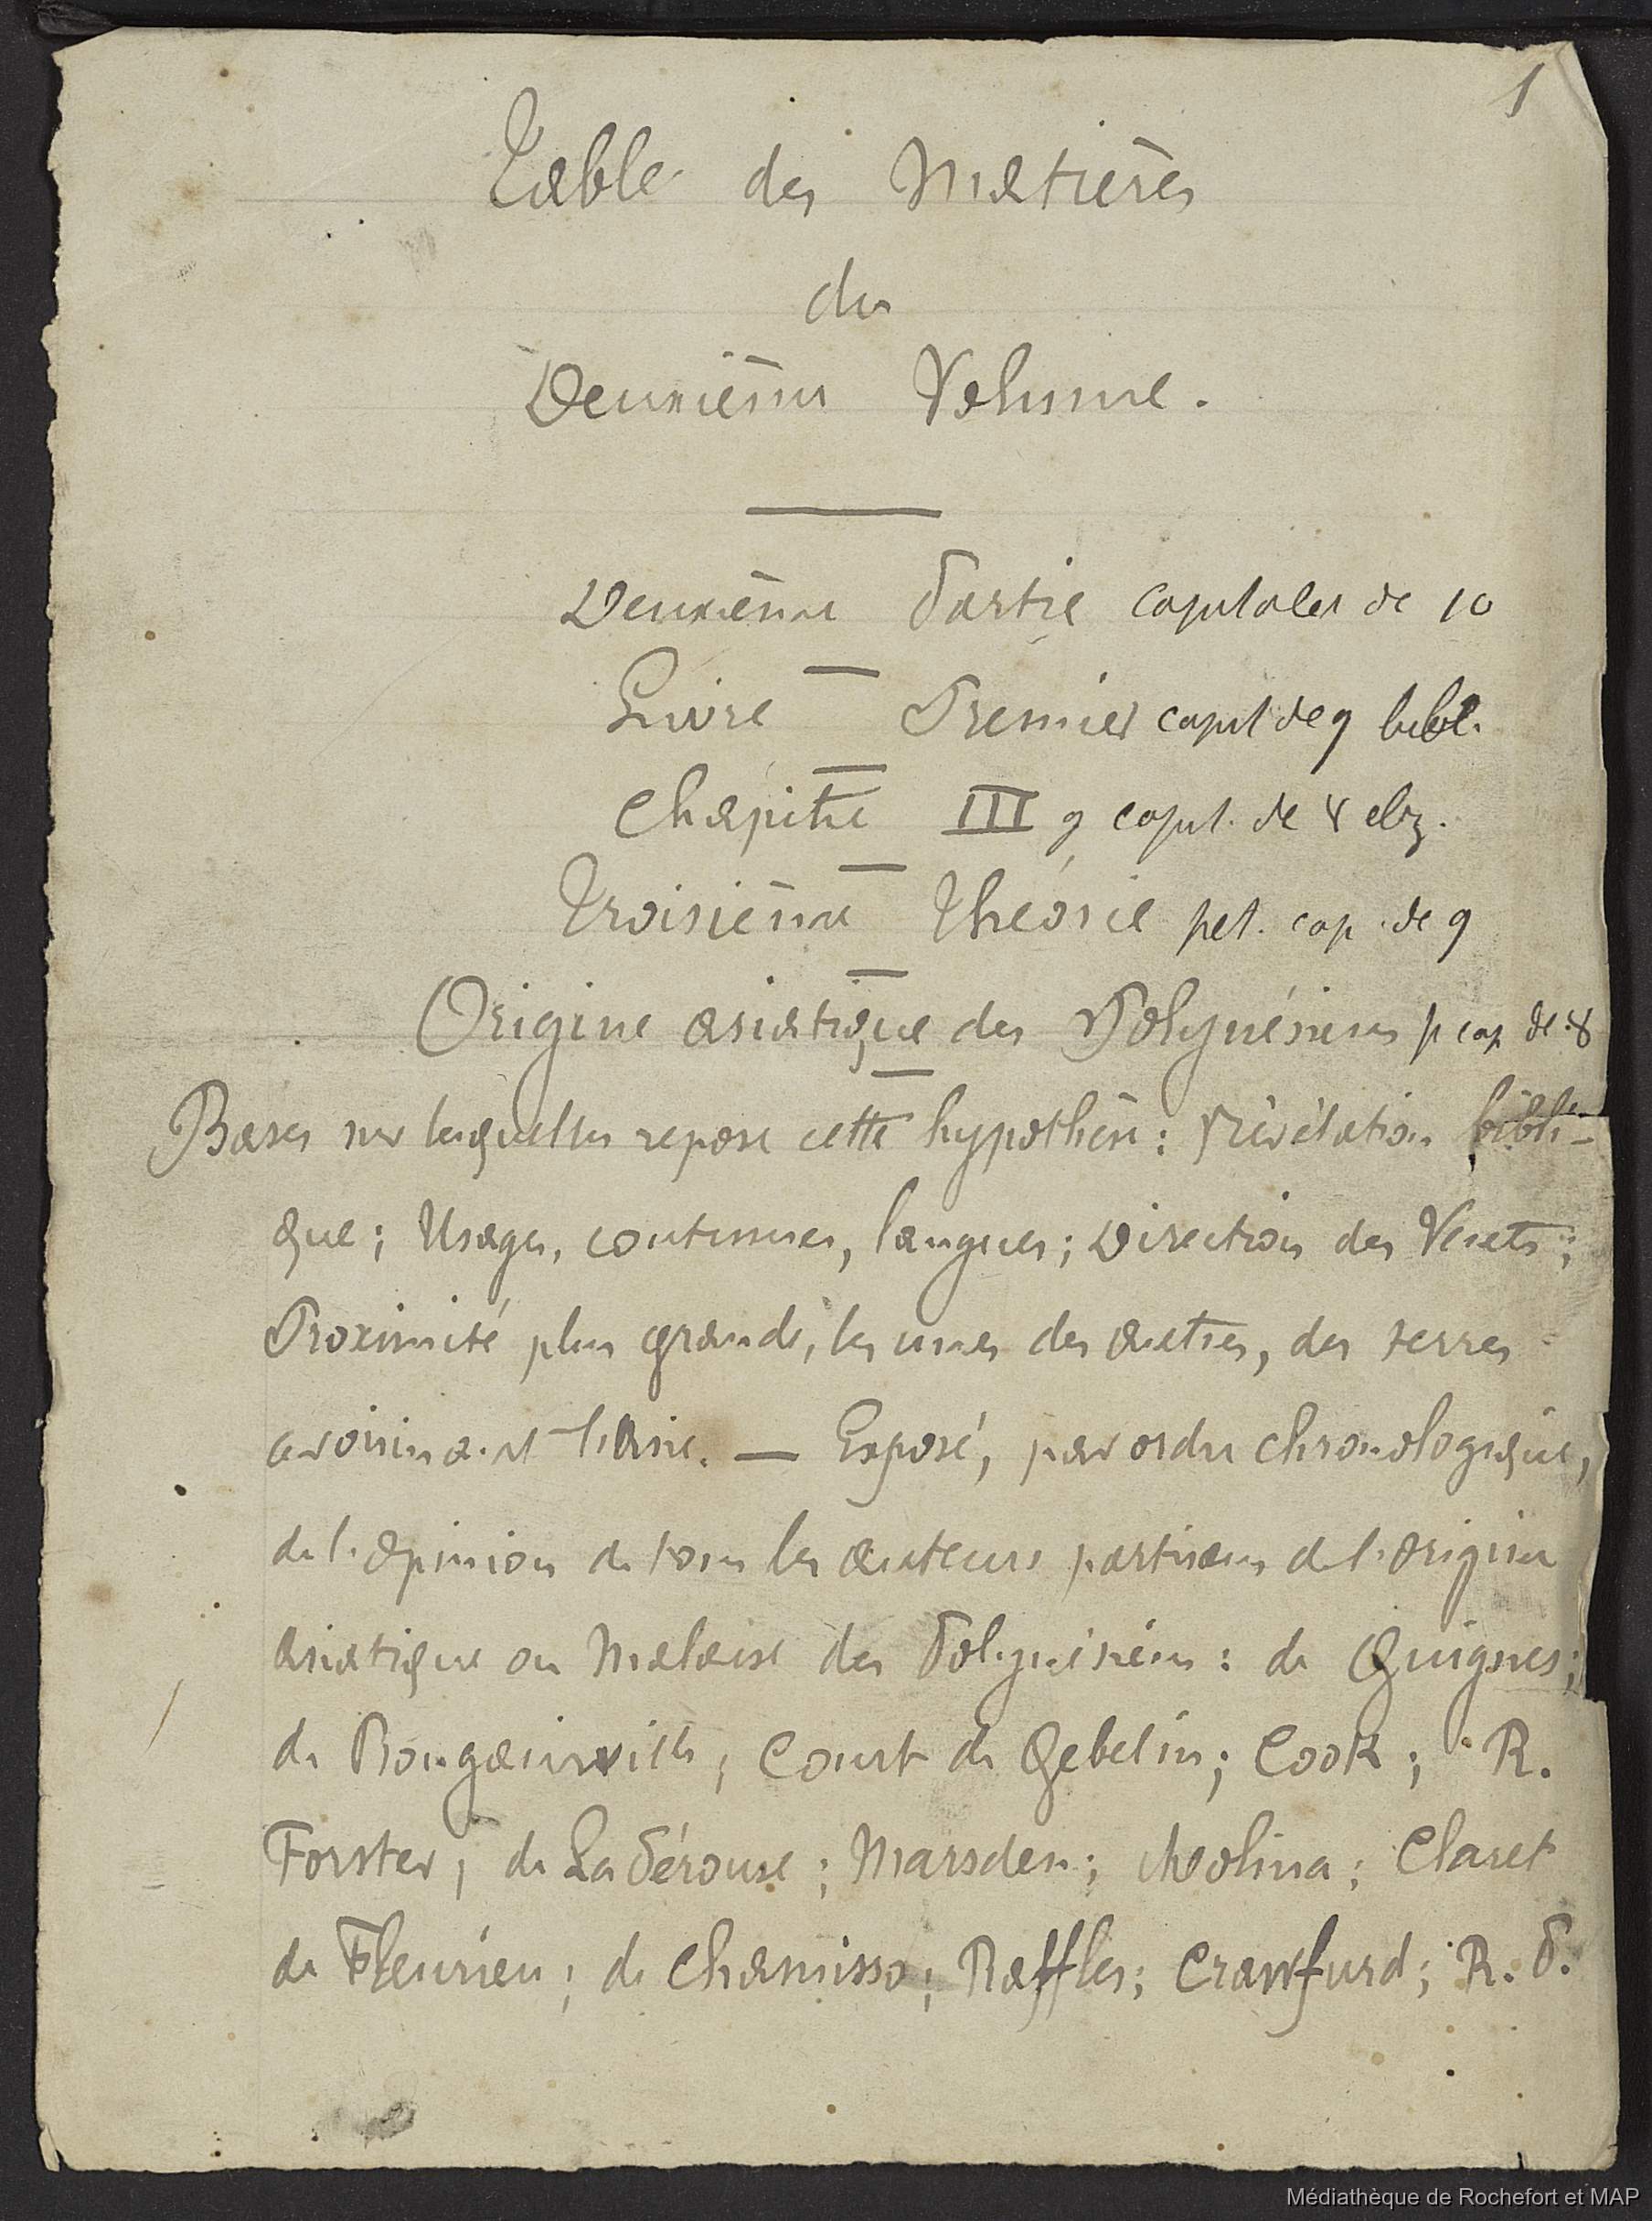 1
Table des Matières
du
Deuxième Volume.
Deuxième Partie capitales de 10
Livre Premier capit de 9
Chapitre III 9 capit. de 8 elz.
Troisième Théorie pet. cap. de 9
Origine asiatique des Polynésiens p cap de 8
Bases sur lesquelles repose cette hypothèse: Révélation bibli-
que; Usages, coutumes, langues; Direction des Vents;
Proximité plus grande, les unes des autres, des terres
avoisinant l'Asie. — Exposé, par ordre chronologique,
de l'opinion de tous les auteurs partisans de l'origine
asiatique ou Malaise des Polynésiens: de Guignes;
de Bougainville; Court de Gebelin; Cook; R.
Forster; de La Pérouse; Marsden; Molina; Claret
de Fleurieu; de Chamisso; Raffles; Crawfurd; R. P.
Médiathèque de Rochefort et MAP